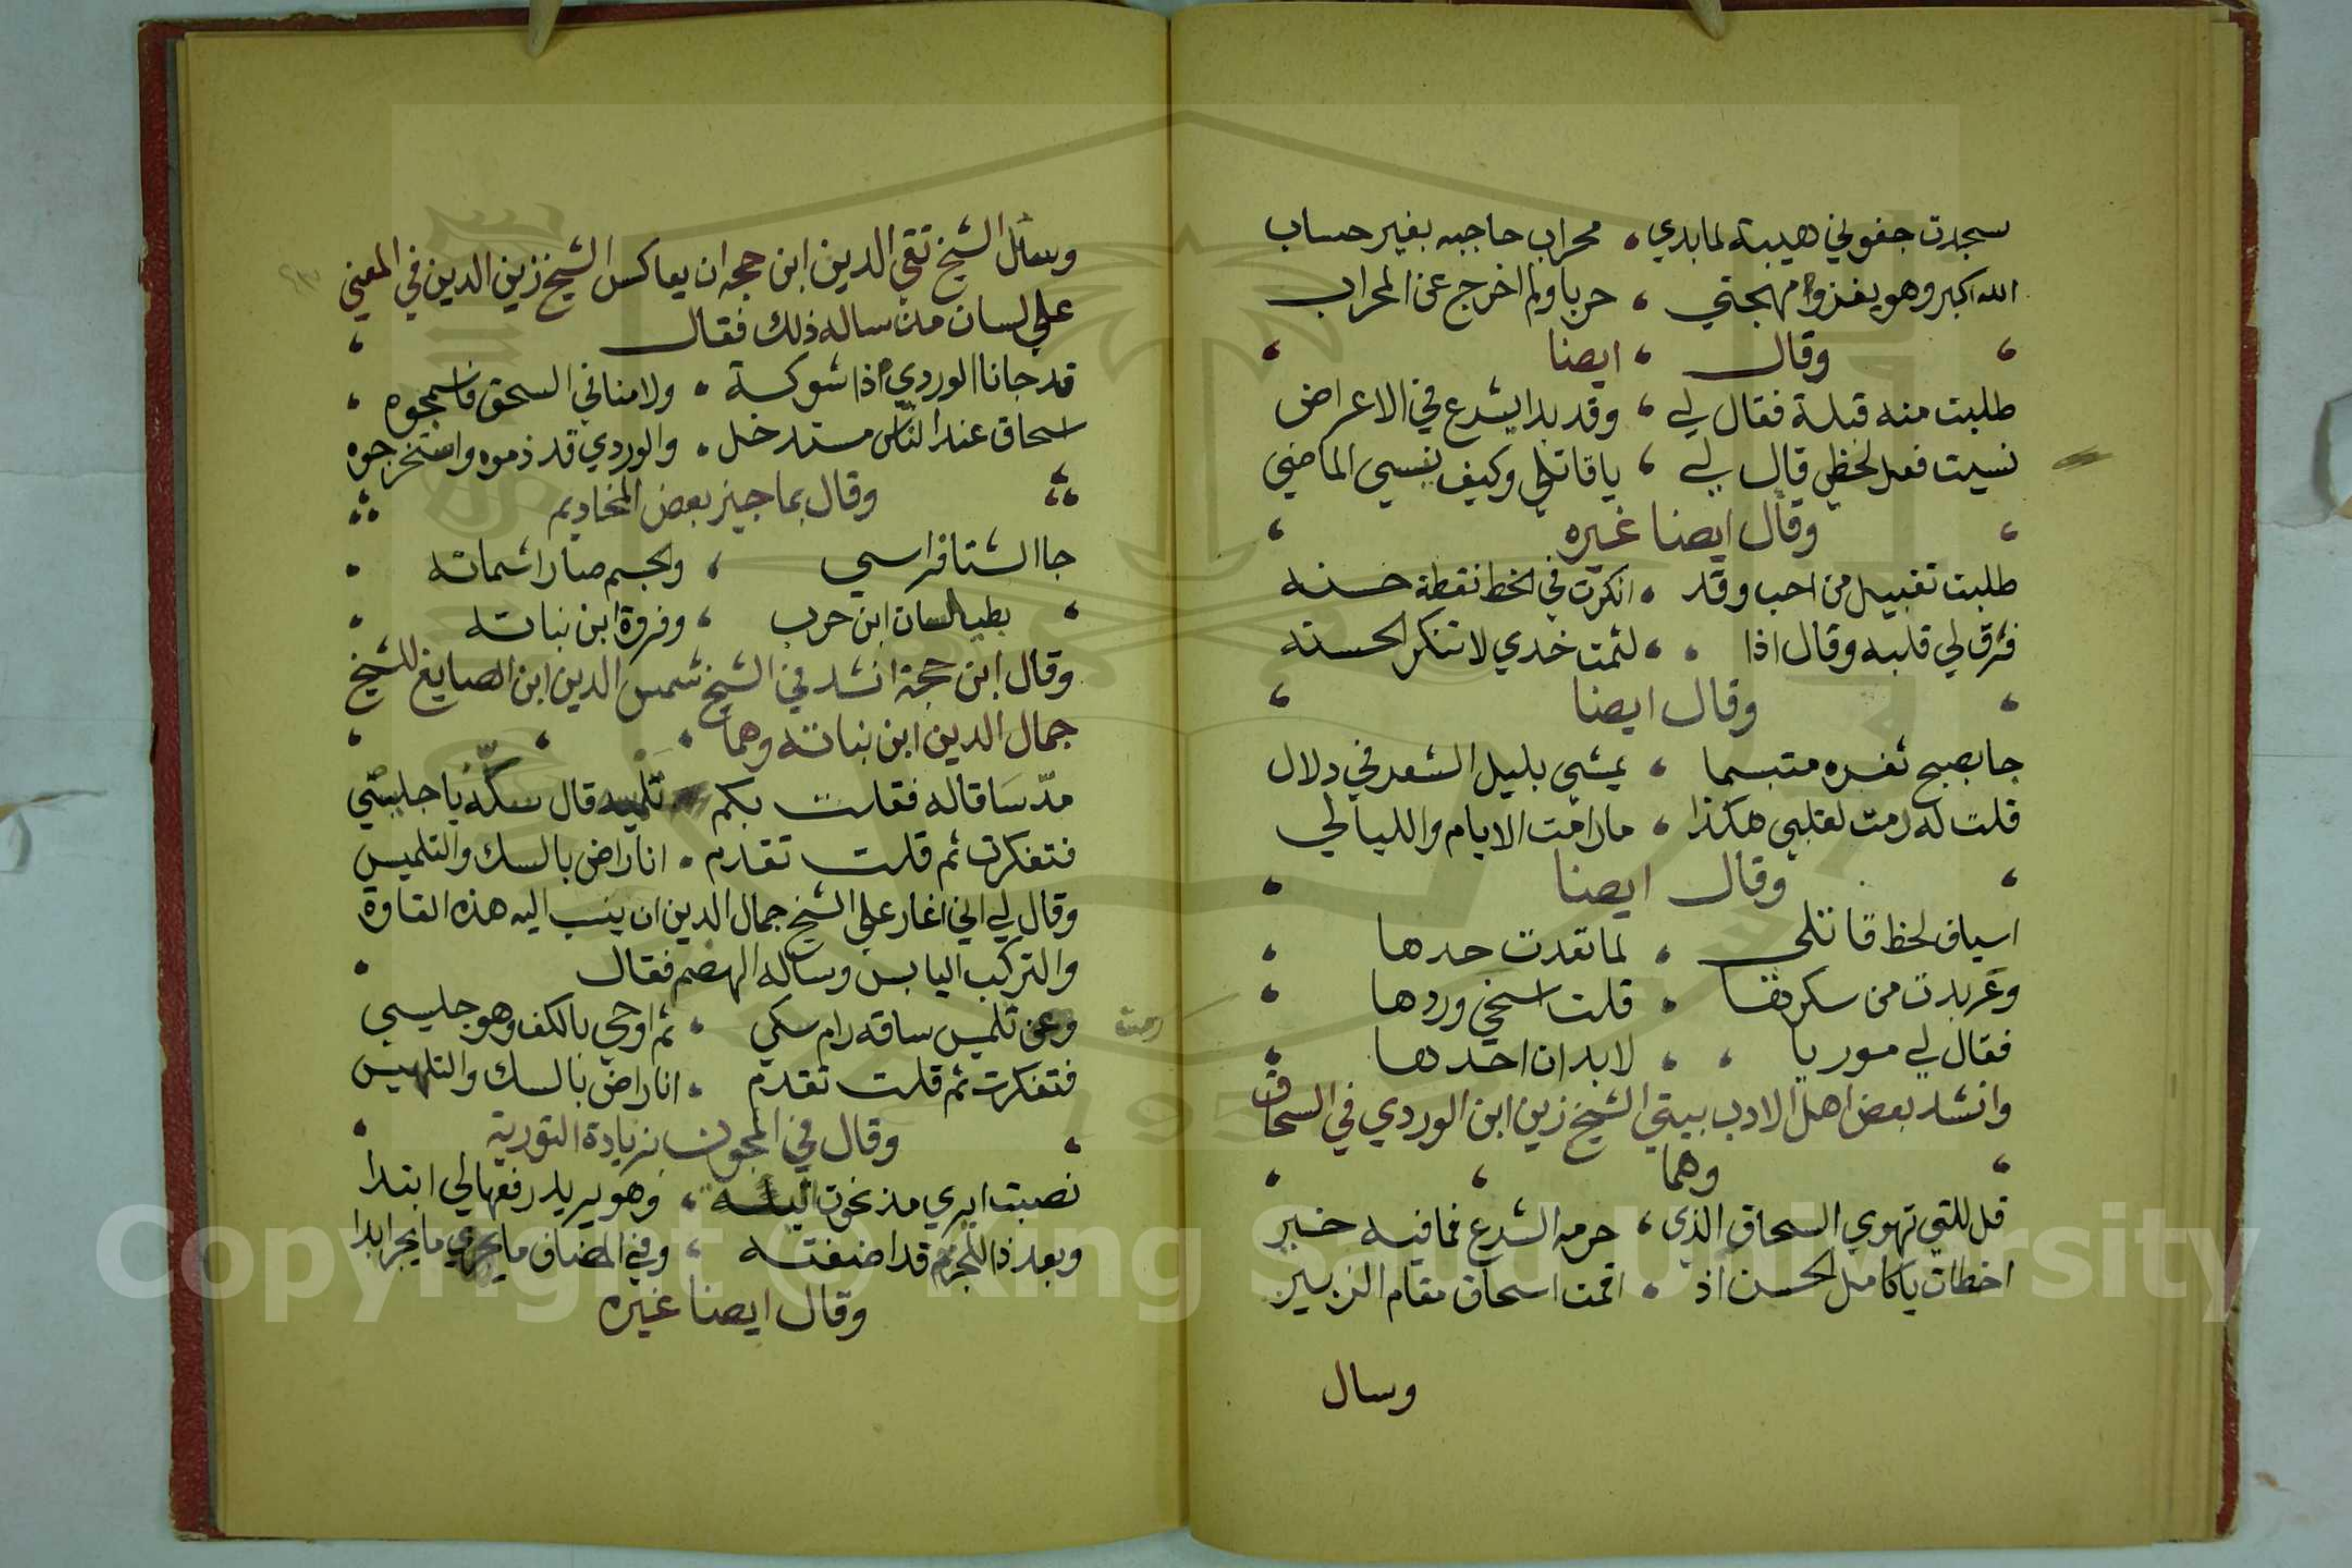 سجدت جفوني هيبة لما بدي محراب حاجبه بغير حساب
الله اكبر وهو يغزوا مهجتي حربا ولم اخرج عن المحراب
وقال ايضا
طلبت منه قبلة فقال لي وقد بدا يشرع في الاعراض
نسيت فعل لحظي قال لي يا قاتلي وكيف ينسي الماضي
وقال ايضا غيره
طلبت تقبيل من احب وقد انكرت في الخط نقطة حسنه
فرق لي قلبه وقال اذا لثمت خدي لا تنكر الحسنه
وقال ايضا
جا بصبح ثغره متبسما يمشي بليل الشعر في دلال
قلت له دمت لقلبي هكذا ما دامت الايام والليالي
وقال ايضا
اسياف لحظ قاتلي لما تعدت حدها
وعربدت من سكرها قلت اسخي وردها
فقال لي موريا لا بد ان احدها
وانشد بعض اهل الادب بيتي الشيخ زين ابن الوردي في السحاق
وهما
قل للتي تهوي السحاق الذي حرمه الشرع فما فيه خير
اخطات يا كامل الحسن اذ اقمت اسحاق مقام الزبير
وسال
وسأل الشيخ تقي الدين ابن حجه ان يعاكس الشيخ زين الدين في المعني
علي لسان من ساله ذلك فقال
قد جانا الوردي اذا شوكة ولامنا في السحق فاسمجوه
اسحاق عند الناس مستدخل والوردي قد ذموه واستخرجوه
وقال بماجيز بعض المخاديم
جا الشتا فراسي والجسم صار اشماته
بطيلسان ابن حرب وفروة ابن نباته
وقال ابن حجة انشدني الشيخ شمس الدين ابن الصايغ للشيخ
جمال الدين ابن نباته وهما
مد ساقا له فقلت بكم تلميسه قال سكه يا جليسي
فتفكرت ثم قلت تقدم انا راض بالسك والتلميس
وقال لي اني اغار علي الشيخ جمال الدين ان ينسب اليه هذه القاوة
والتركب اليابس وساله الهضم فقال
رمت
وعن تلميس ساقه رام سكي ثم اوحي بالكف وهو جليسي
فتفكرت ثم قلت تقدم انا راض بالسك والتلميس
وقال في المجون بزيادة التورية
نصبت ايري مذ نحوت نيله وهو يريد رفعها لي ابتدا
وبعد ذا للجرم قد اضفته وفي المضاف ما يجري ما يجر ابدا
وقال ايضا غيره
Copyright © King Saud University
1957